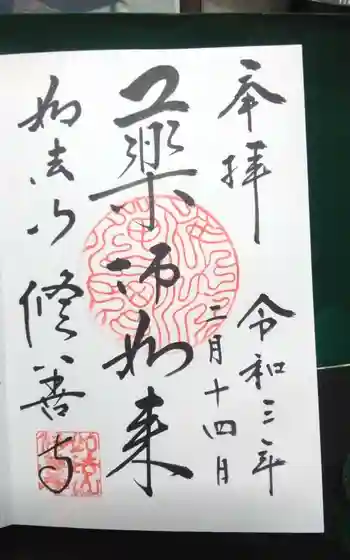 奉拝
令和三年
二月十四日
薬師如来
如法山
修善寺